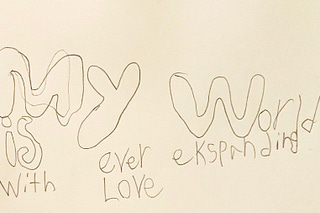 My World
is ever ekspanding
with LOVE